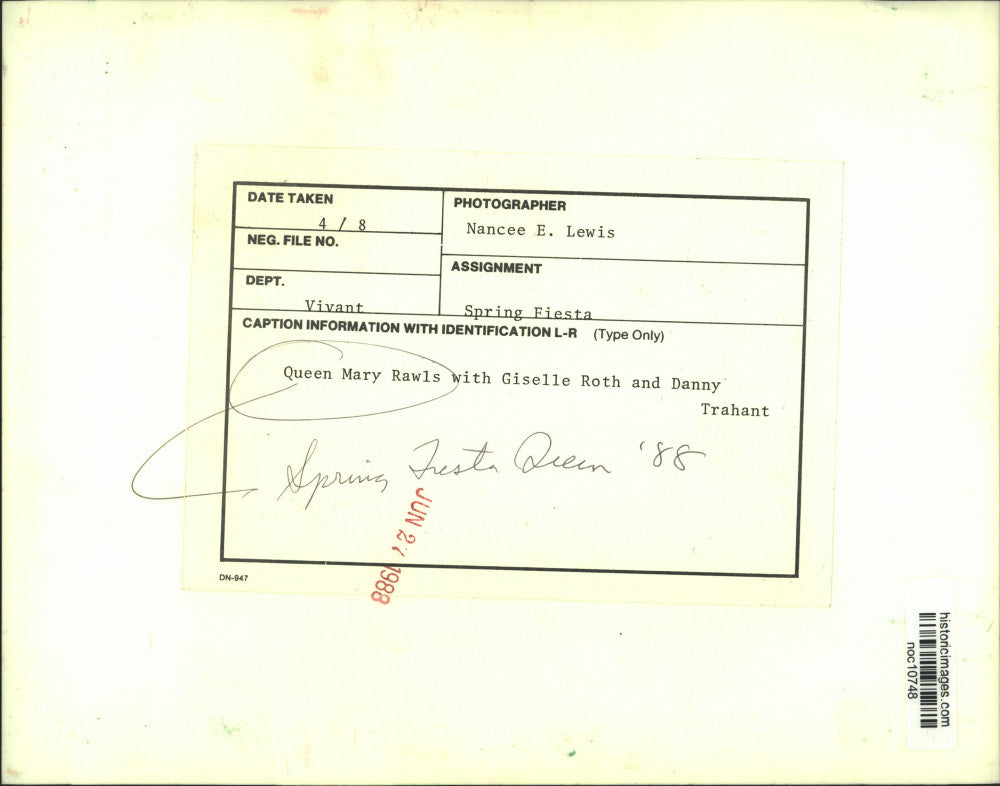 DATE TAKEN
4 / 8
PHOTOGRAPHER
Nancee E. Lewis
NEG. FILE NO.
ASSIGNMENT
Spring Fiesta
DEPT.
Vivant
CAPTION INFORMATION WITH IDENTIFICATION L-R (Type Only)
Queen Mary Rawls with Giselle Roth and Danny
Trahant
Spring Fiesta Queen '88
JUN 27 1988
DN-947
historicimages.com
noc10748